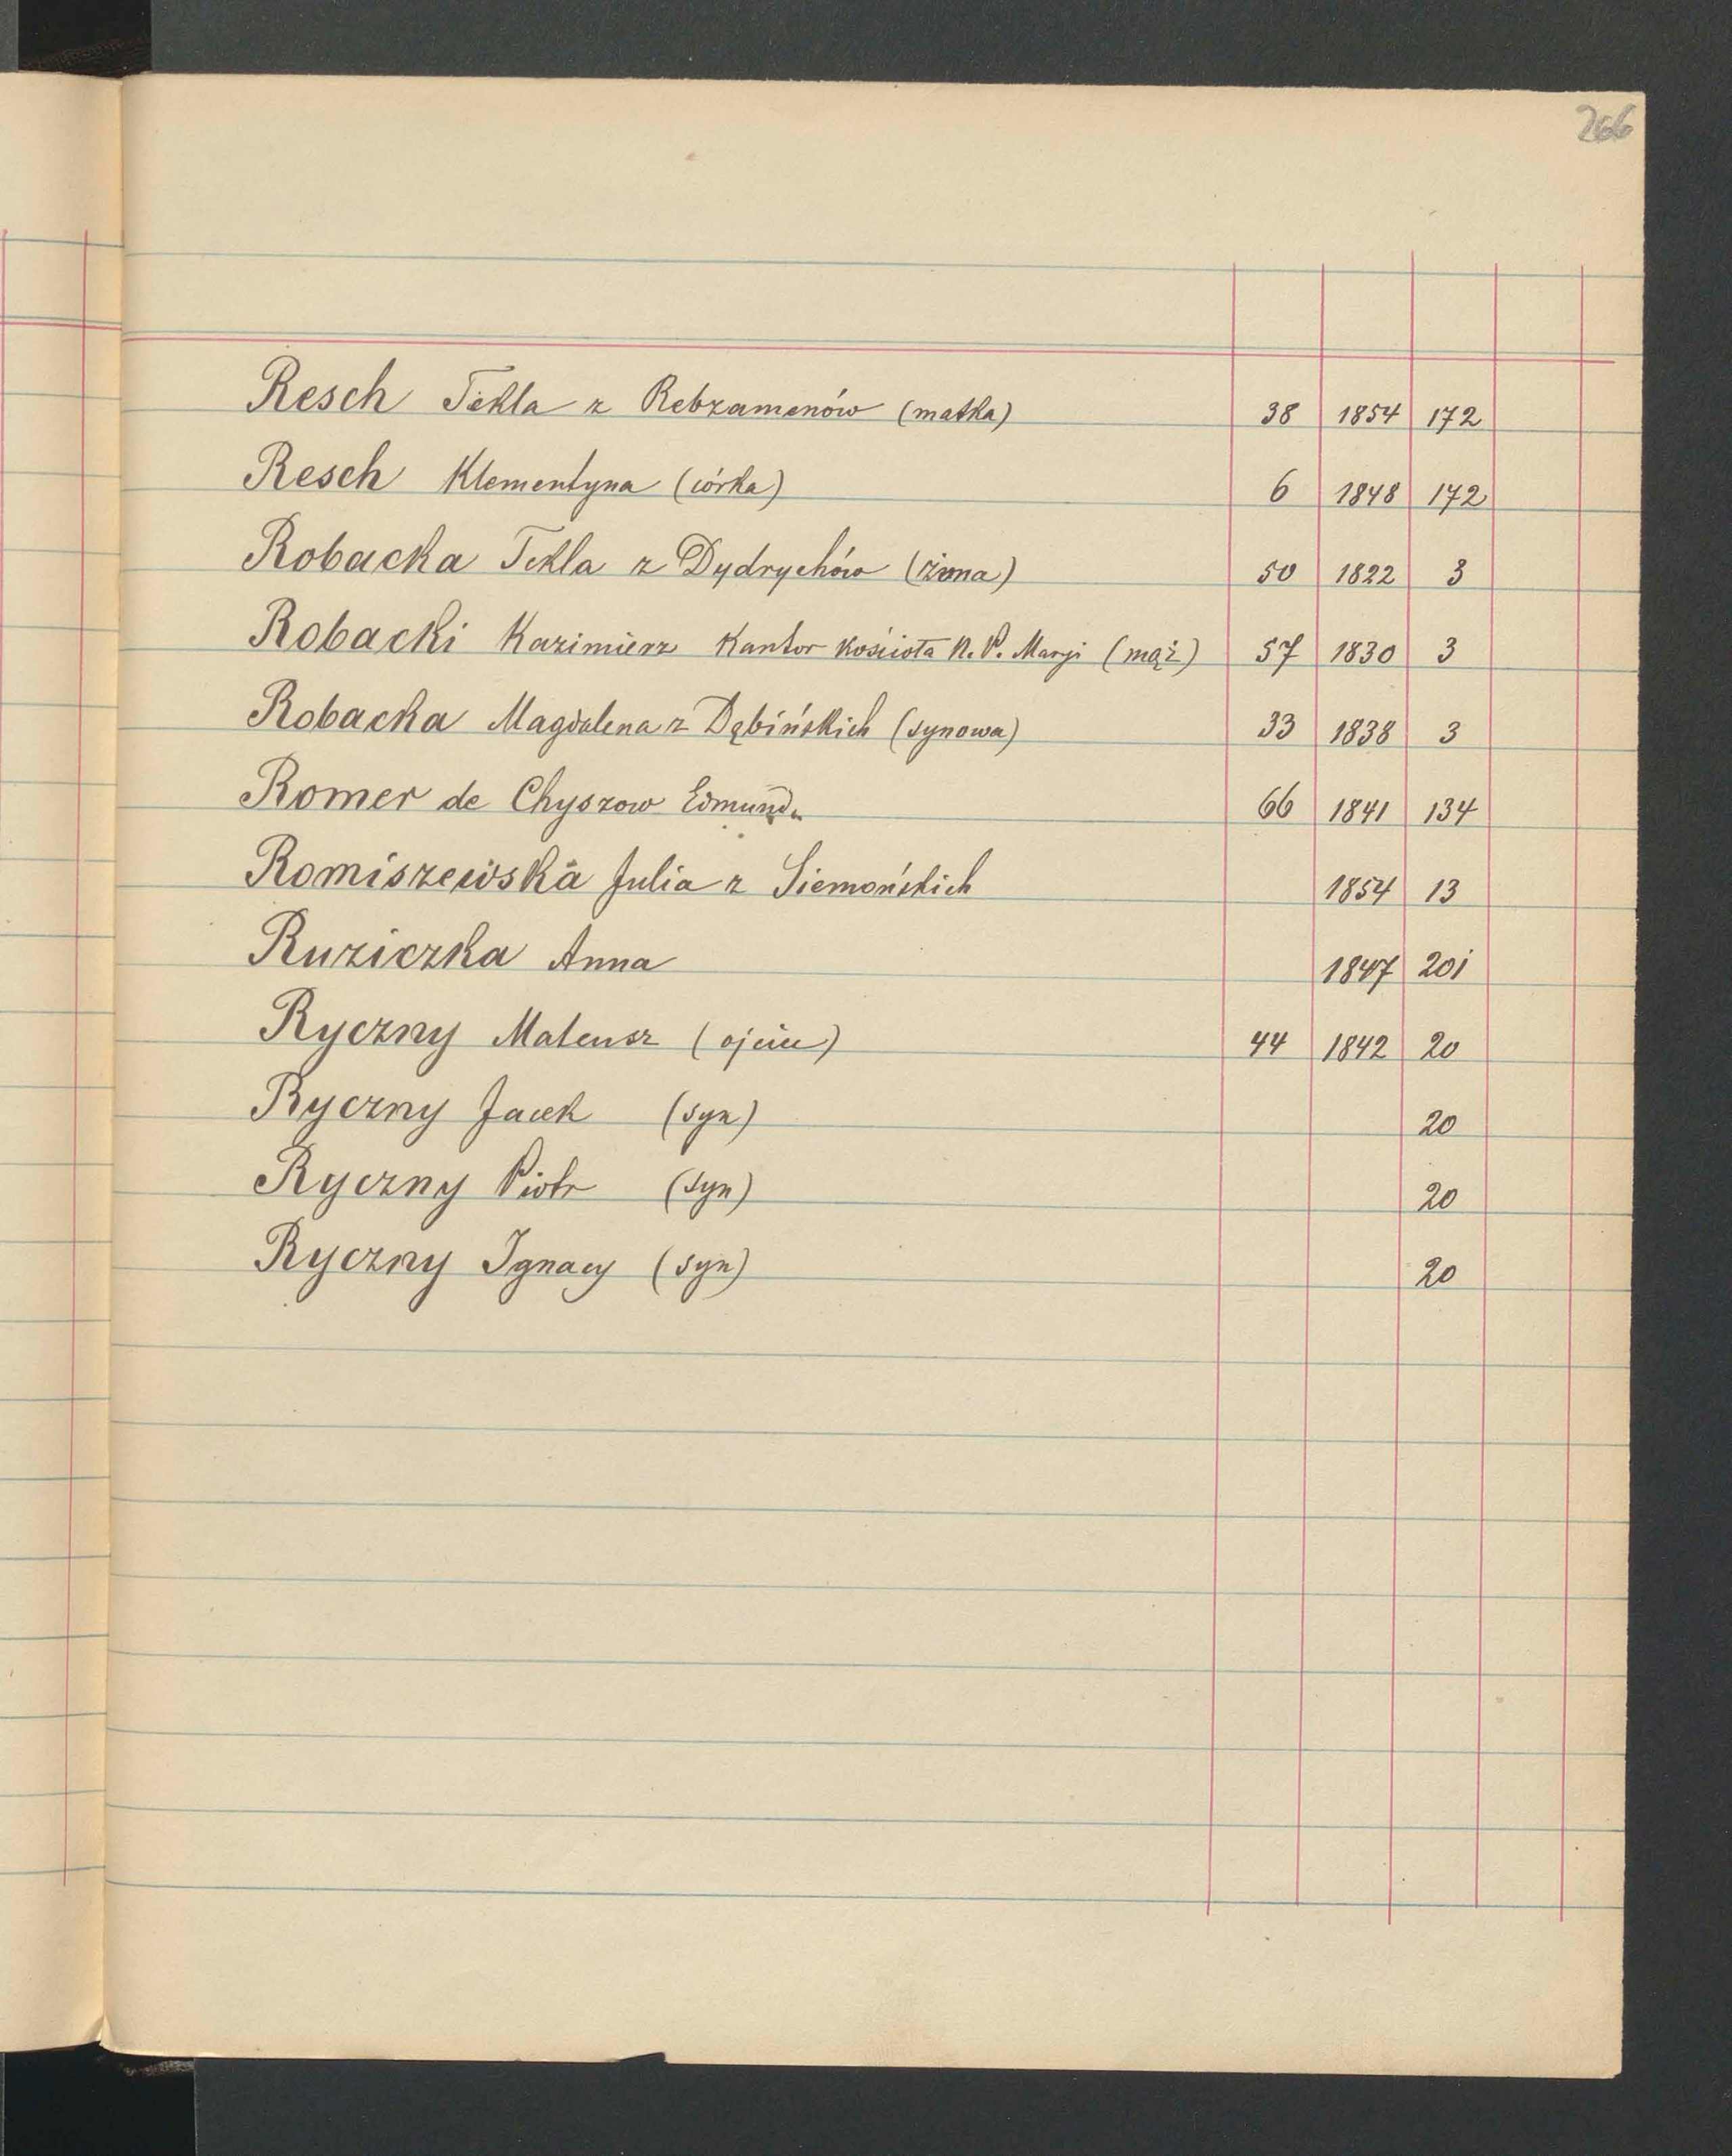 266
Resch Tekla z Rebzamenów (matka) 38 1854 172
Resch Klementyna (córka) 6 1848 172
Robacka Tekla z Dydrychów (żona) 50 1822 3
Robacki Kazimierz Kantor kościoła N. P. Marji (mąż) 57 1830 3
Robacka Magdalena z Dąbińskich (synowa) 33 1838 3
Romer de Chyszow Edmund. 66 1841 134
Romiszewska Julia z Siemońskich 1854 13
Ruziczka Anna 1847 201
Ryczny Mateusz (ojciec) 44 1842 20
Ryczny Jacek (syn) 20
Ryczny Piotr (syn) 20
Ryczny Ignacy (syn) 20